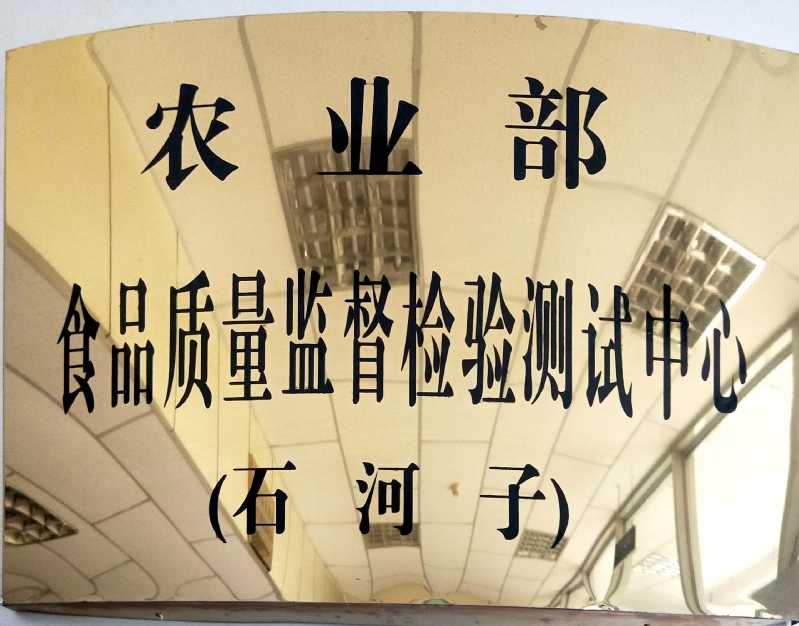 农业部
食品质量监督检验测试中心
(石河子)